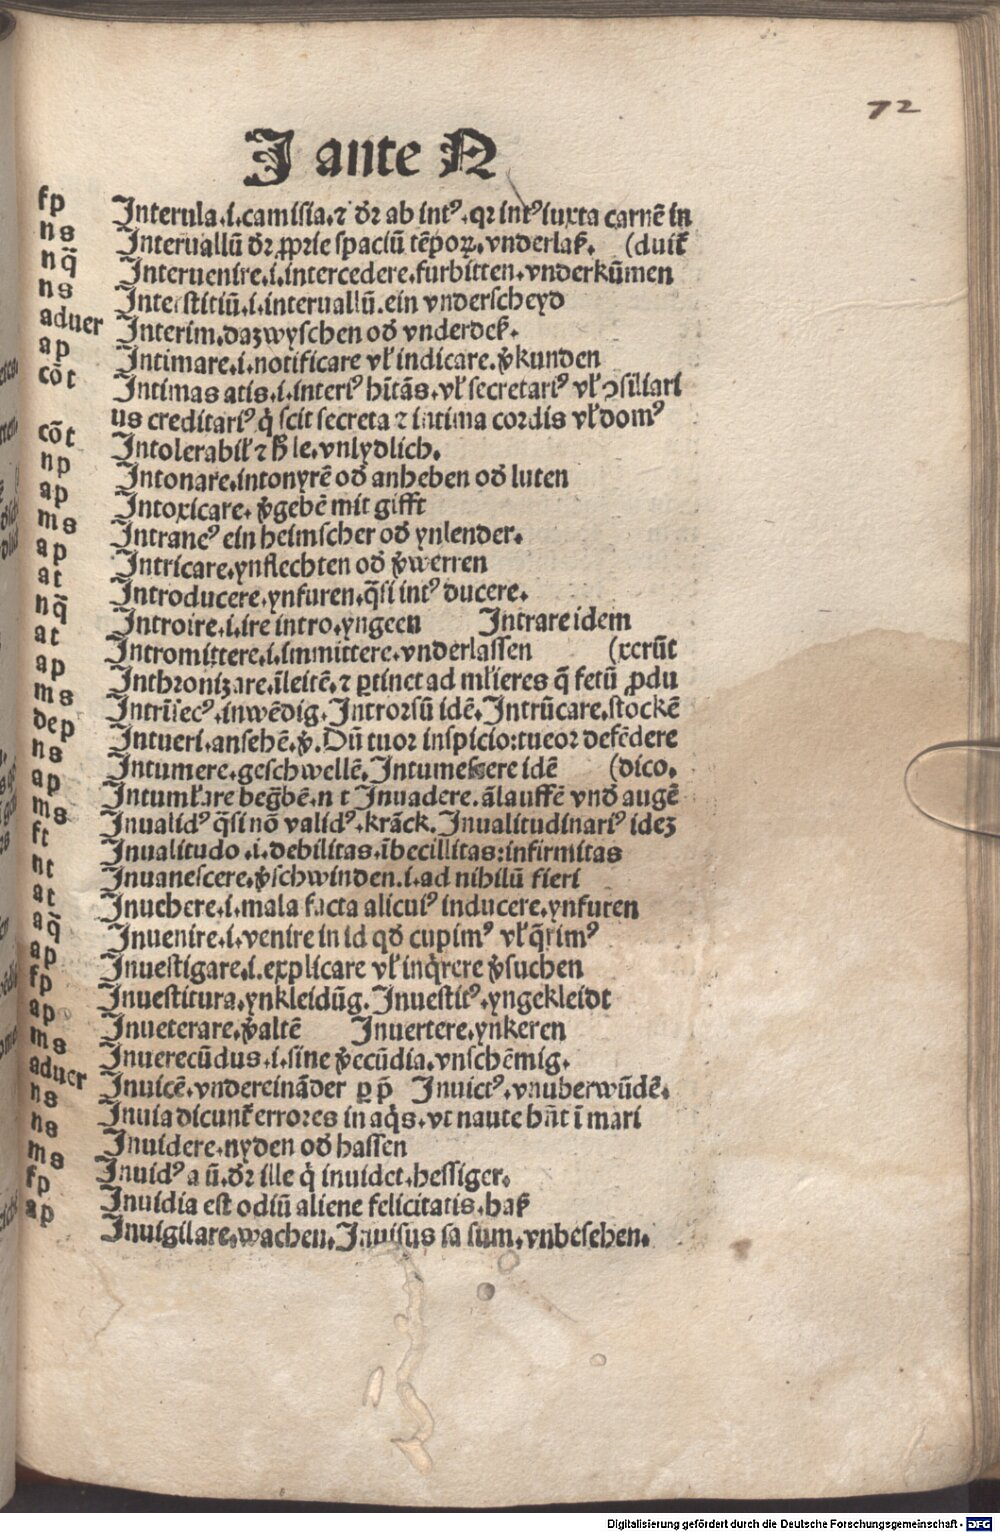 72
I ante N
fp Interula.i.camisia.⁊ dr̄ ab intꝰ.qꝛ intꝰ iuxta carnē in
ns Interuallū dr̄ ꝓprie spaciū tēpoꝝ.vnderlaß. (duit̄
nq̄ Interuenire.i.intercedere.furbitten.vnderkūmen
ns Interstitiū.i.interuallū.ein vnderscheyd
aduer Interim.dazwyschen od̄ vnderdeß.
ap Intimare.i.notificare vl̄ indicare.v̄kunden
cōt Intimas atis.i.interiꝰ hn̄tās.vl̄ secretariꝰ vl̄ ↄsiliari
us creditariꝰ q̇ scit secreta ⁊ intima cordis vl̄ domꝰ
cōt Intolerabil̄ ⁊ h̄ le.vnlydlich.
np Intonare.intonyrē od̄ anheben od̄ luten
ap Intoxicare.v̄gebē mit gifft
ms Intraneꝰ ein heimscher od̄ ynlender.
ap Intricare.ynflechten od̄ v̄werren
at Introducere.ynfuren.q̄si intꝰ ducere.
nq̄ Introire.i.ire intro.yngeen Intrare idem
at Intromittere.i.immittere.vnderlassen (xerūt
ap Inthronizare.īleitē.⁊ ꝑtinet ad ml̄ieres q̄ fetū ꝓdu
ms Intrīsecꝰ.inwēdig.Introrsū idē.Intrūcare.stockē
dep Intueri.ansehē.v̄.Dū tuor inspicio:tueor defēdere
ns Intumere.geschwellē.Intumescere idē (dico.
ap Intuml̄are beg̃bē.n t Inuadere.ālauffē vnd̄ augē
ms Inualidꝰ q̄si nō validꝰ.krāck.Inualitudinariꝰ idez
ft Inualitudo.i.debilitas.ībecillitas:infirmitas
nt Inuanescere.v̄schwinden.i.ad nihilū fieri
at Inuehere.i.mala facta alicuiꝰ inducere.ynfuren
aq̄ Inuenire.i.venire in id qd̄ cupimꝰ vl̄ q̄rimꝰ
ap Inuestigare.i.explicare vl̄ inq̇rere v̄suchen
fp Inuestitura.ynkleidūg.Inuestitꝰ.yngekleidt
ap Inueterare.v̄altē Inuertere.ynkeren
ms Inuerecūdus.i.sine v̄ecūdia.vnschēmig.
aduer Inuicē.vndereināder ꝑ p̄ Inuictꝰ.vnuberwūdē.
ns Inuia dicunt̄ errores in aq̇s.vt naute hn̄t ī mari
ns Inuidere.nyden od̄ hassen
ms Inuidꝰ a ū.dr̄ ille q̇ inuidet.hessiger.
fp Inuidia est odiū aliene felicitatis.haß
ap Inuigilare.wachen.Inuisus sa sum.vnbesehen.
Digitalisierung gefördert durch die Deutsche Forschungsgemeinschaft - DFG